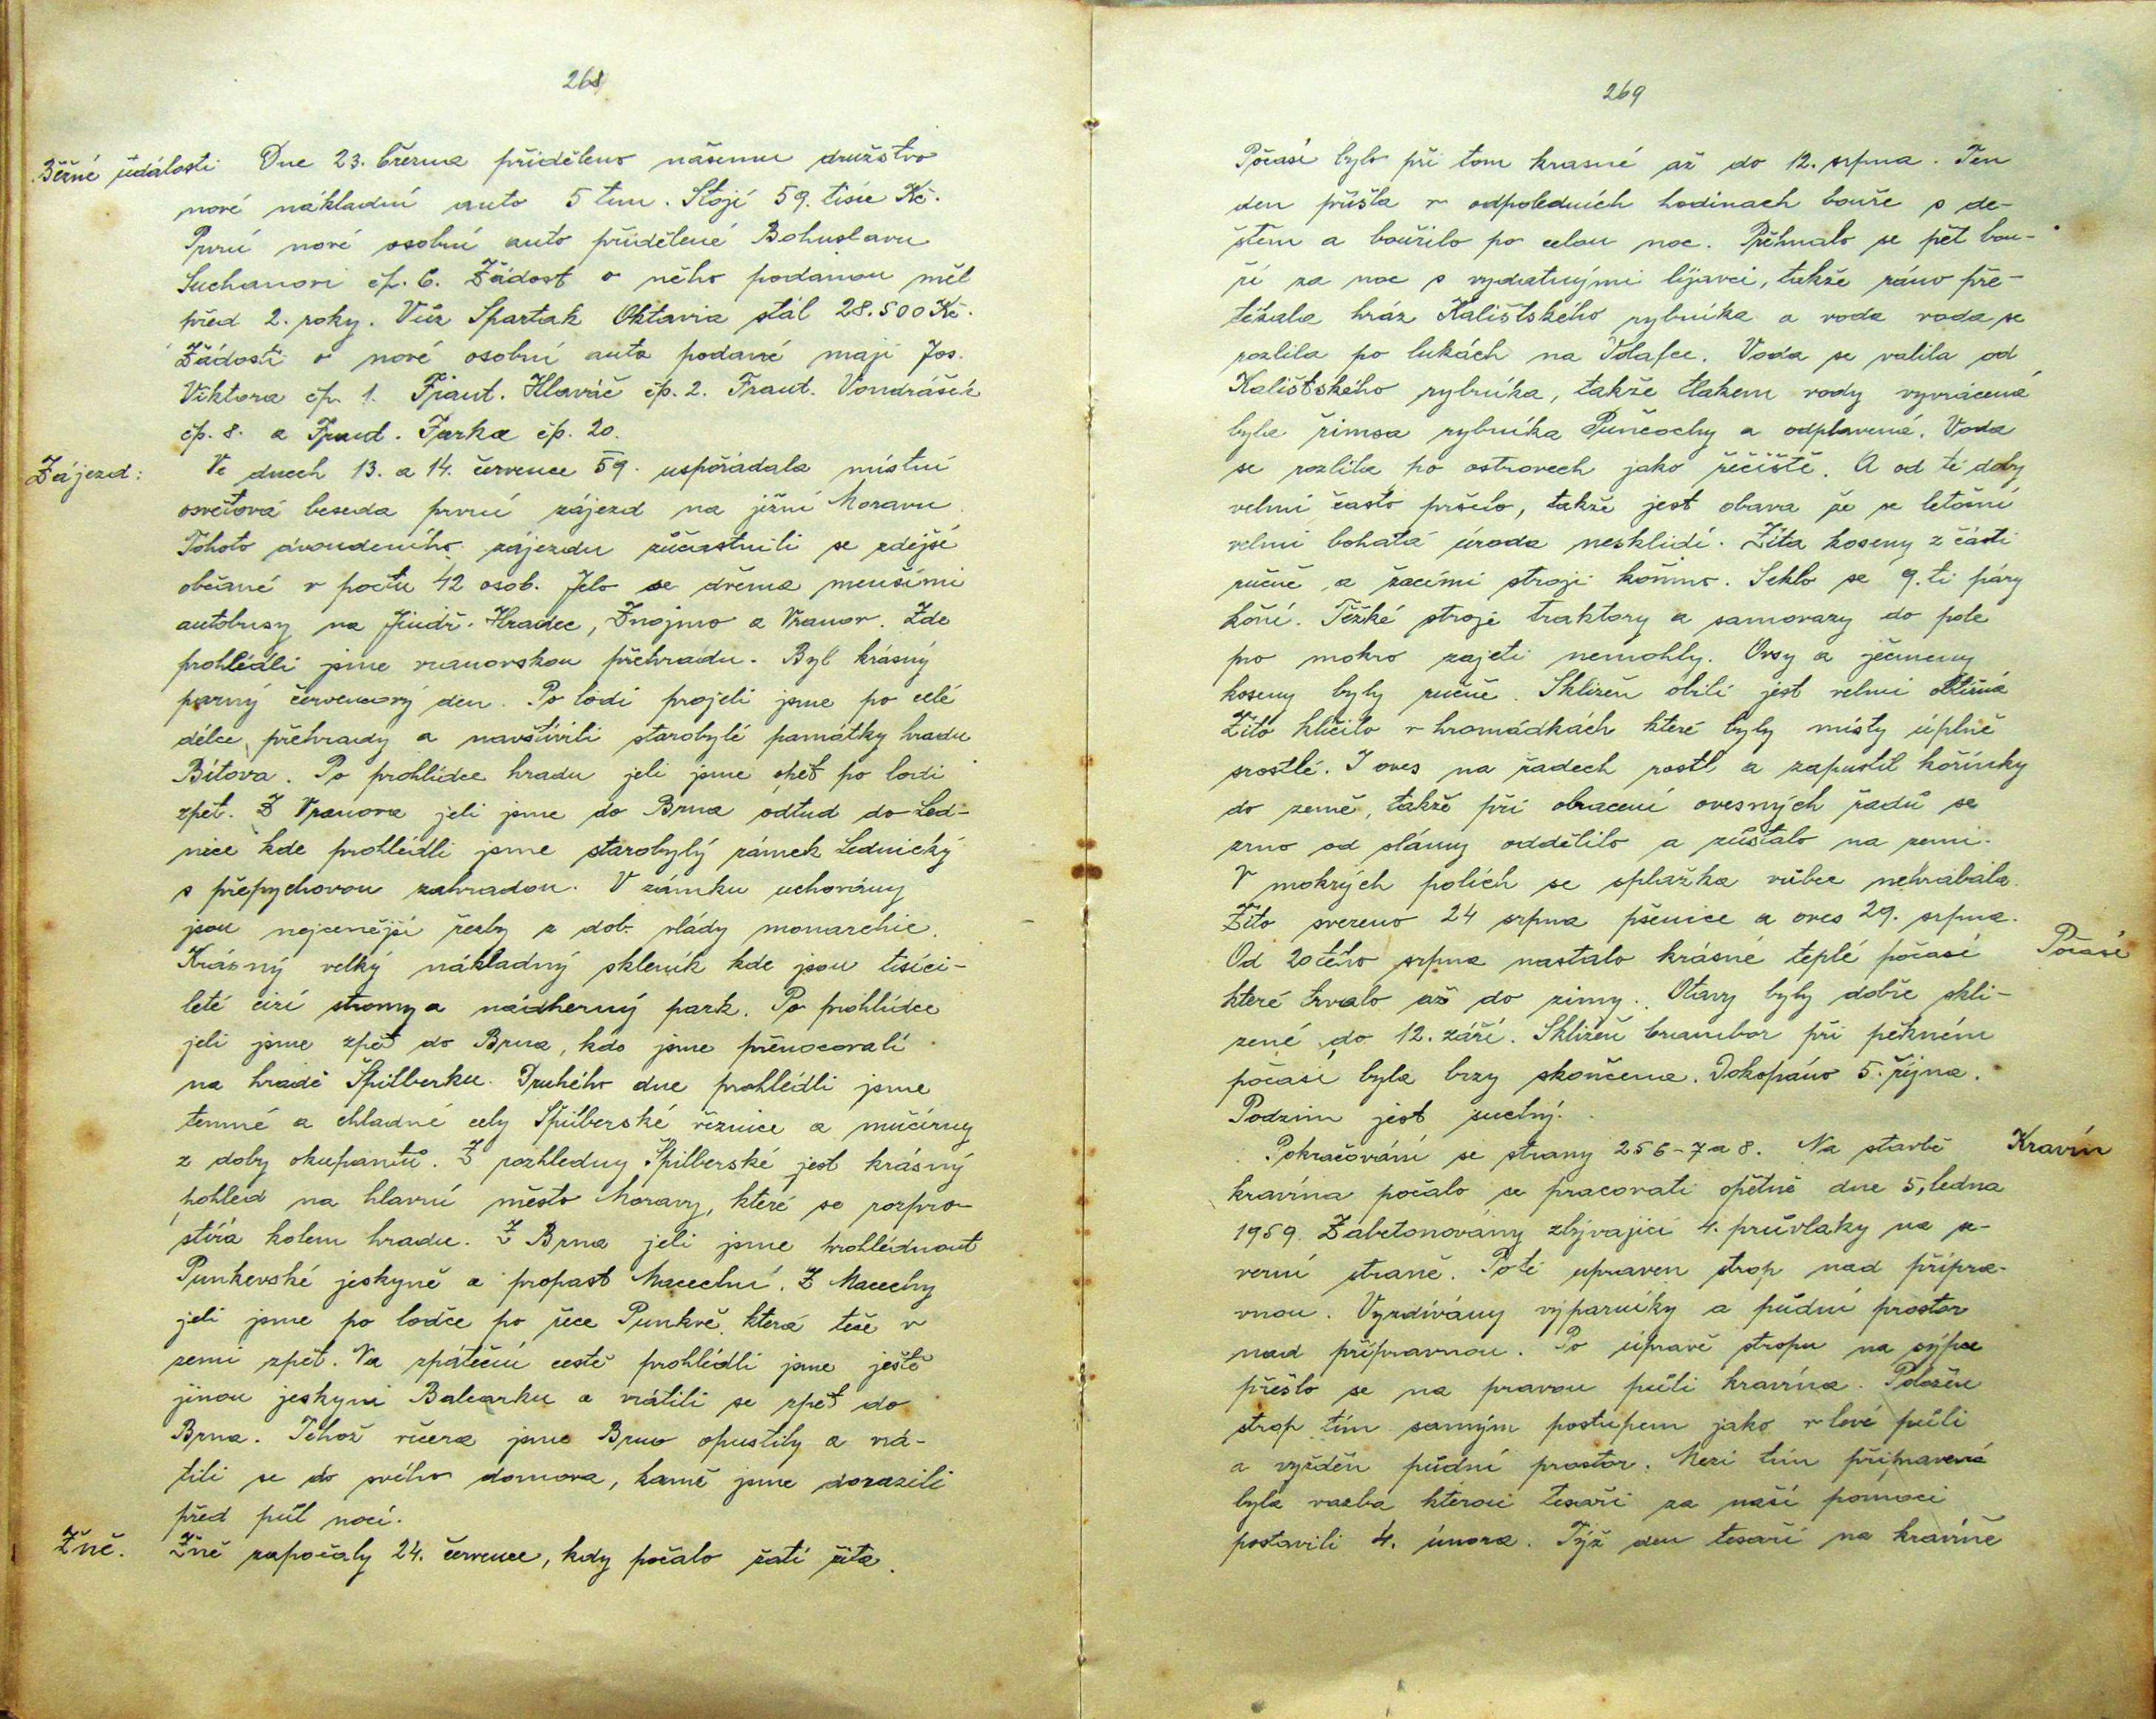 268
Běžné události Dne 23. března přiděleno našemu družstvo
nové nákladní auto 5 tun. Stojí 59. tisíc Kč.
První nové osobní auto přidělené Bohuslavu
Suchanovi čp. 6. Žádost o něho podanou měl
před 2. roky. Vůz Spartak Oktavia stál 28.500 Kč.
Žádosti o nové osobní auta podané mají Jos.
Viktora čp. 1. Frant. Hlaváč čp. 2. Frant. Vondrášek
čp. 8. a Frant. Jarka čp. 20.
Zájezd: Ve dnech 13. a 14. července 59. uspořádala místní
osvětová beseda první zájezd na jižní Moravu.
Tohoto dvoudeního zájezdu zůčastnili se zdejší
občané v počtu 42 osob. Jelo se dvěma menšími
autobusy na Jindř. Hradec, Znojmo a Vranov. Zde
prohlédli jsme vranovskou přehradu. Byl krásný
parný červencový den. Po lodi projeli jsme po celé
délce přehrady a navštívili starobylé památky hradu
Bítova. Po prohlídce hradu jeli jsme opět po lodi
zpět. Z Vranova jeli jsme do Brna odtud do Led-
nice kde prohlédli jsme starobylý zámek Lednický
s přepychovou zahradou. V zámku uchovány
jsou nejcenější řezby z dob vlády monarchie.
Krásný velký nákladný skleník kde jsou tisíci-
leté cizí stromy a nádherný park. Po prohlídce
jeli jsme zpět do Brna, kdo jsme přenocovali
na hradě Špilberku. Druhého dne prohlédli jsme
temné a chladné cely Špilberské věznice a mučírny
z doby okupantů. Z rozhledny Špilberské jest krásný
pohled na hlavní město Moravy, které se rozpro-
stírá kolem hradu. Z Brna jeli jsme prohlédnout
Punkevské jeskyně a propast Macechu. Z Macechy
jeli jsme po loďce po řece Punkvě která teče v
zemi zpět. Na zpáteční cestě prohlédli jsme ještě
jinou jeskyni Balcarku a vrátili se zpět do
Brna. Téhož večera jsme Brno opustily a vrá-
tili se do svého domova, kamž jsme dorazili
před půl nocí.
Žně. Žně započaly 24. července, kdy počalo žati žita.
269
Počasí bylo při tom krasné až do 12. srpna. Ten
den přišla v odpoledních hodinach bouře s de-
štěm a bouřilo po celou noc. Přehnalo se pět bou-
ří za noc s vydatnými lijavci, takže ráno pře-
tékala hráz Kalištského rybníka a voda voda se
rozlila po lukách na Volafce. Voda se valila od
Kalištského rybníka, takže tlakem vody vyvrácená
byla římsa rybníka Punčochy a odplavená. Voda
se rozlila po ostrovech jako řečiště. A od té doby
velmi často pršelo, takže jest obava že se letošní
velmi bohatá úroda neskludí. Žita koseny z části
ručně a žacími stroji koňmo. Seklo se 9. ti páry
koní. Těžké stroje traktory a samovazy do pole
pro mokro zajeti nemohly. Ovsy a ječmeny
koseny byly ručně. Sklizeň obilí jest velmi obtížná
Žito klíčilo v hromádkách které byly místy úplně
srostlé. I oves na řadech rostl a zapustil kořínky
do země, takže při obracení ovesných řadů se
zrno od slámy oddělilo a zůstalo na zemi.
V mokrých polích se splažka vůbec nehrabala.
Žito svezeno 24 srpna pšenice a oves 29. srpna.
Od 20tého srpna nastalo krásné teplé počasí Počasí
které trvalo až do zimy. Otavy byly dobře skli-
zené do 12. září. Sklizeň brambor při pěkném
počasí byla brzy skončena. Dokopáno 5. října.
Podzim jest suchý.
Pokračování se strany 256-7 a 8. Na stavbě Kravín
kravína počalo se pracovati opětně dne 5, ledna
1959. Zabetonovány zbývající 4. průvlaky na se-
verní straně. Poté upraven strop nad přípra-
vnou. Vyzdívány výparníky a půdní prostor
nad přípravnou. Po úpravě stropu na sýpce
přešlo se na pravou půli kravína. Položen
strop tím samým postupem jako v levé půli
a vyzděn půdní prostor. Mezi tím připravená
byla vazba kterou tesaři za naší pomoci
postavili 4. února. Týž den tesaři na kravíně